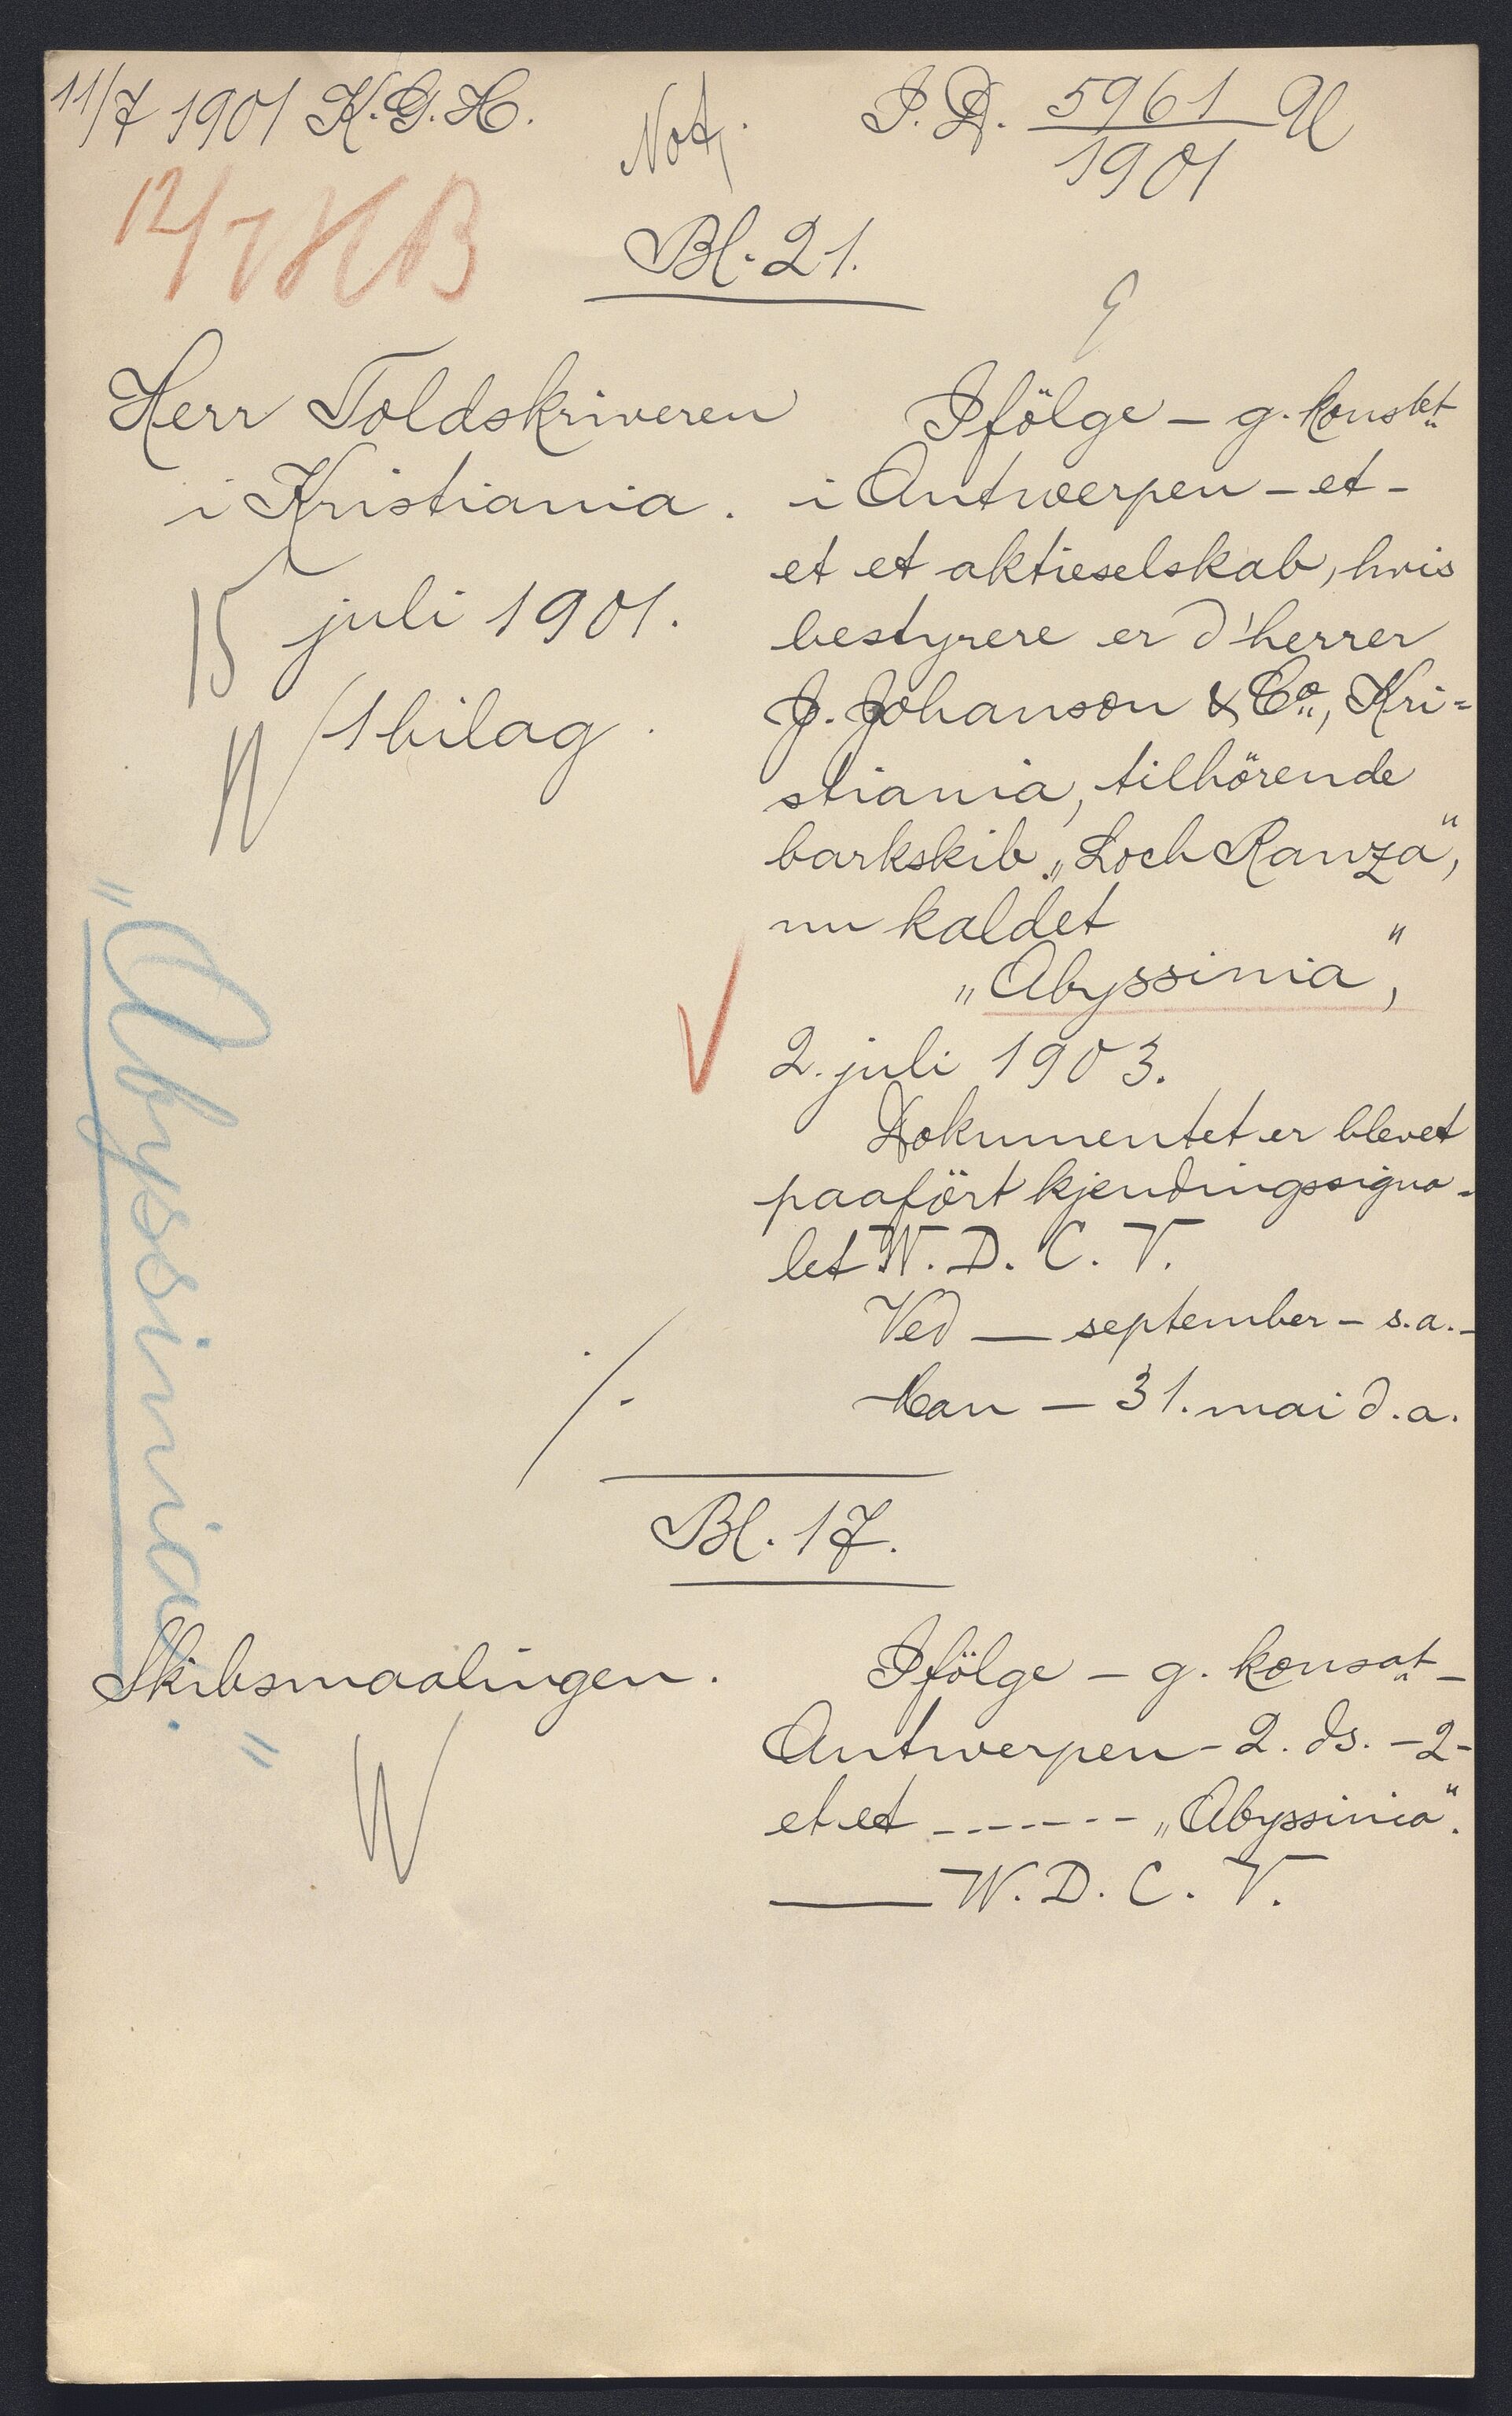 11/7 1901 K.G.H.
Not.
I.D. 5961 U
1901
12/7 HB
Bl. 21.
Herr Toldskriveren
i Kristiania.
15 juli 1901.
1 bilag.
Ifölge – g. konslet
i Antwerpen – et –
et et aktieselskab, hvis
bestyrere er d'herrer
J. Johanson & Co., Kri=
stiania, tilhörende
barkskib „Loch Ranza",
nu kaldet
„Abyssinia",
2. juli 1903.
Dokumentet er blevet
paafört kjendingssigna-
let W. D. C. T.
Ved — september – s.a. –
Man — 31. mai d.a.
"Abyssinia."
Bl. 17.
Skibsmaalingen.
Ifölge – g. konsat –
Antwerpen – 2. ds. – 2 –
et et - - - - - - „Abyssinia".
— W. D. C. T.